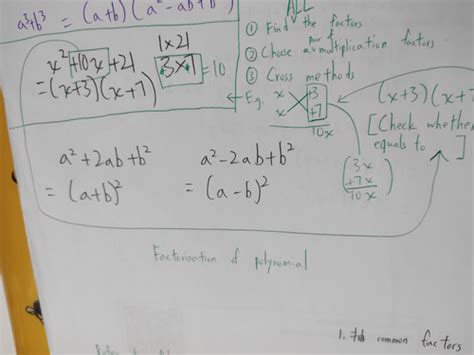 a³+b³ = (a+b)(a²-ab+b²)
x²+10x+21
=(x+3)(x+7)
1×21
3×7 =10
ALL
① Find the factors
② Choose a pair of multiplication factors
③ Cross methods
← Eg. x +3
x +7
10x
(x+3)(x+7
[Check whether
equals to ]
(3x
+7x
10x)
a²+2ab+b²
=(a+b)²
a²-2ab+b²
=(a-b)²
Factorisation of polynomial
1. common factors